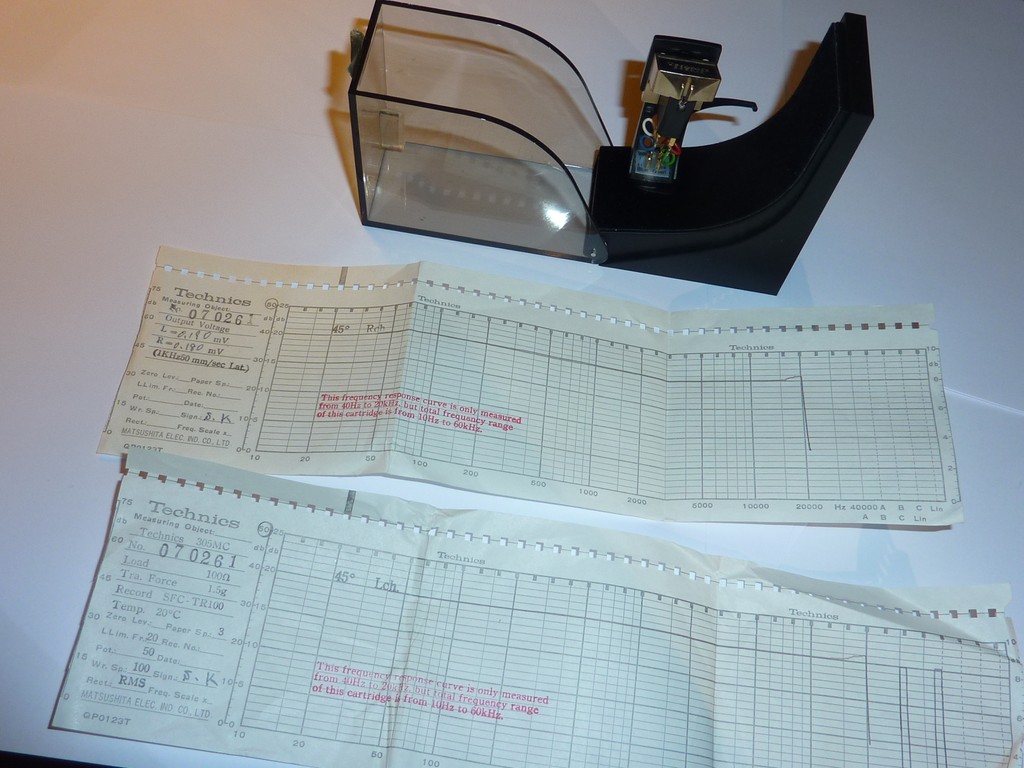 Technics
Measuring Object:
No. 070261
Output Voltage
L = 0.190 mV
R = 0.190 mV
(1KHz50 mm/sec Lat.)
Zero Lev.: Paper Sp.:
LLim. Fr.: Rec. No.:
Pot.: Date:
Wr. Sp.: Sign.: S. K
Rect.: Freq. Scale x
MATSUSHITA ELEC. IND. CO., LTD.
QP0123T
75
db
60
45
30
15
0
50 25
db db
40 20
30 15
20 10
10 5
0 0
Technics
45° Rch.
This frequency response curve is only measured
from 40Hz to 20kHz, but total frequency range
of this cartridge is from 10Hz to 60kHz.
Technics
10 20 50 100 200 500 1000 2000 5000 10000 20000 Hz 40000 A B C Lin
A B C Lin
10
8
6
4
2
0
Technics
Measuring Object:
Technics 305MC
No. 070261
Load 100Ω
Tra. Force 1.5g
Record SFC-TR100
Temp. 20°C
Zero Lev.: Paper Sp.: 3
LLim. Fr.: 20 Rec. No.:
Pot.: 50 Date:
Wr. Sp.: 100 Sign.: S. K
Rect.: RMS Freq. Scale x
MATSUSHITA ELEC. IND. CO., LTD.
QP0123T
75
db
60
45
30
15
0
50 25
db db
40 20
30 15
20 10
10 5
0 0
Technics
45° Lch.
This frequency response curve is only measured
from 40Hz to 20kHz, but total frequency range
of this cartridge is from 10Hz to 60kHz.
Technics
10 20 50 100
10
8
6
4